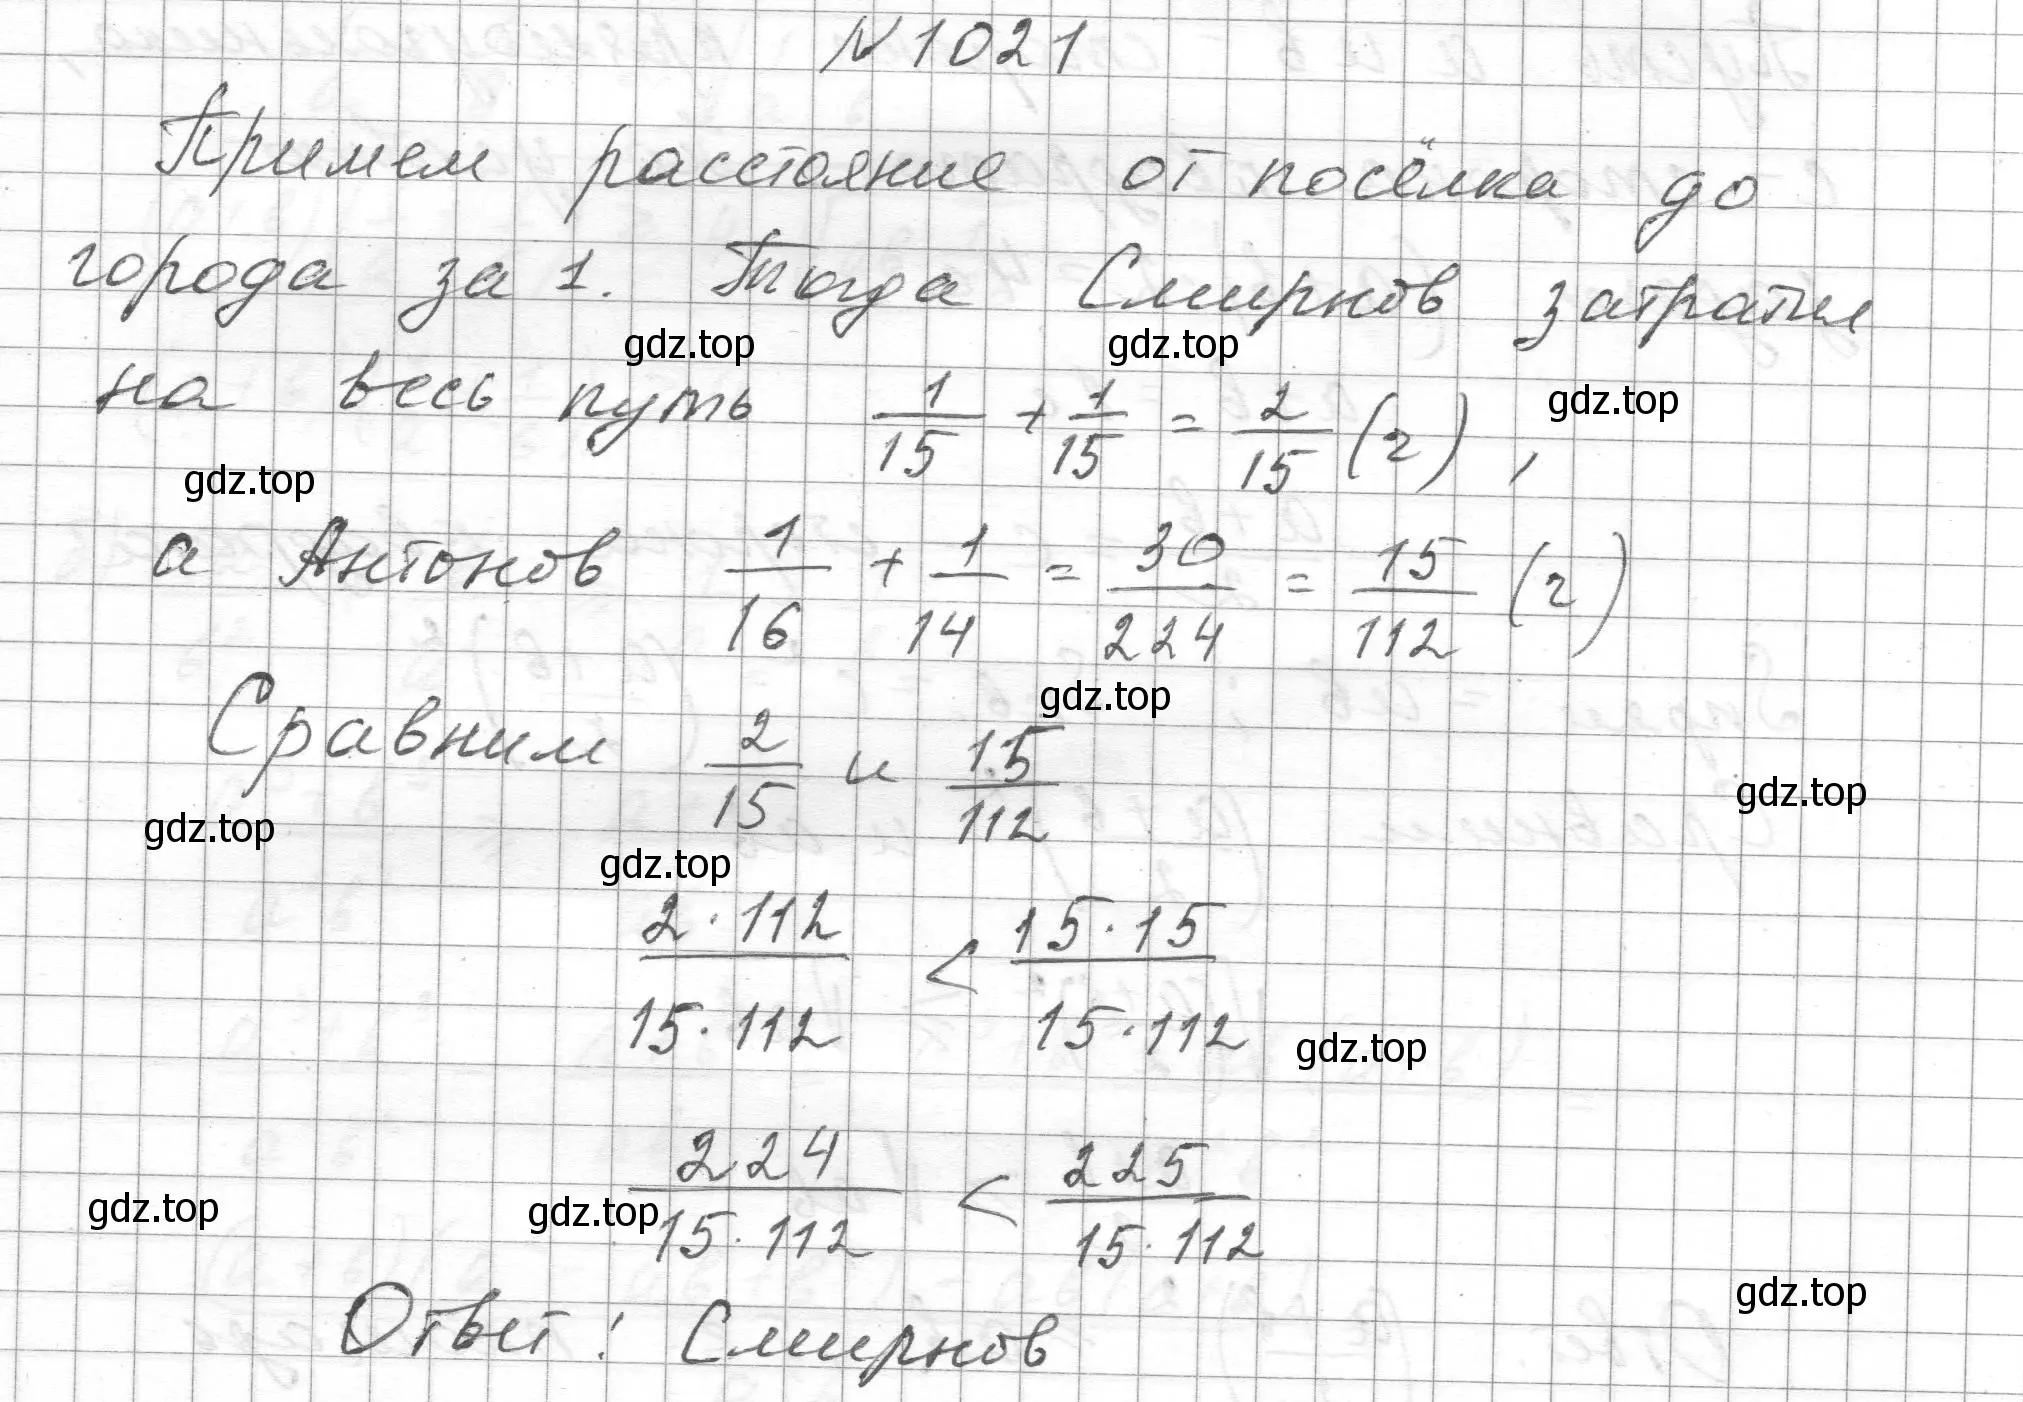 №1021
Примем расстояние от посёлка до
города за 1. Тогда Смирнов затратил
gdz.top gdz.top
на весь путь 1/15 + 1/15 = 2/15 (ч),
gdz.top
gdz.top
а Антонов 1/16 + 1/14 = 30/224 = 15/112 (ч)
gdz.top
Сравним 2/15 и 15/112
gdz.top
gdz.top gdz.top
2·112/15·112 < 15·15/15·112
gdz.top
224/15·112 < 225/15·112
gdz.top gdz.top
gdz.top
Ответ: Смирнов